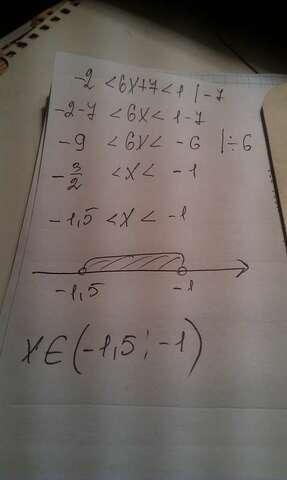 -2 < 6x+7 < 1 | -7
-2-7 < 6x < 1-7
-9 < 6x < -6 | ÷6
-3/2 < x < -1
-1,5 < x < -1
-1,5 -1
x ∈ (-1,5 ; -1)